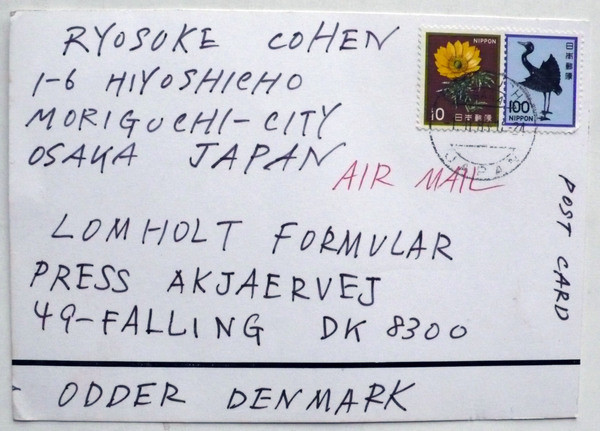 RYOSUKE COHEN
1-6 HIYOSHICHO
MORIGUCHI-CITY
OSAKA JAPAN
NIPPON
10 日本郵便
日本郵便
100
NIPPON
JAPAN
AIR MAIL
POST CARD
LOMHOLT FORMULAR
PRESS AKJAERVEJ
49-FALLING DK 8300
ODDER DENMARK